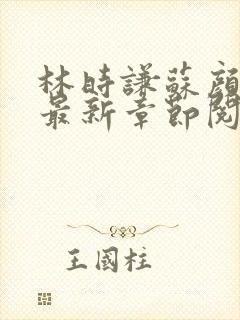 林時謙蘇顔
最新章節閱
王國柱